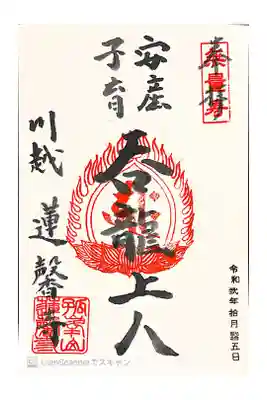 奉拝
安産
子育
呑龍上人
川越
蓮馨寺
令和弐年拾月廿五日
CamScannerでスキャン